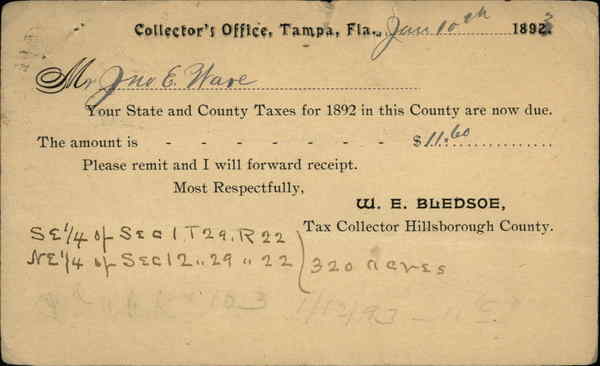 Collector's Office, Tampa, Fla., Jan 10th 1893
Mr Jno E. Ware
Your State and County Taxes for 1892 in this County are now due.
The amount is - - - - - - - $11.60
Please remit and I will forward receipt.
Most Respectfully,
W. E. BLEDSOE,
Tax Collector Hillsborough County.
SE 1/4 of Sec 1, T 29, R 22
NE 1/4 of Sec 12 " 29 " 22 } 320 acres
1/12/93